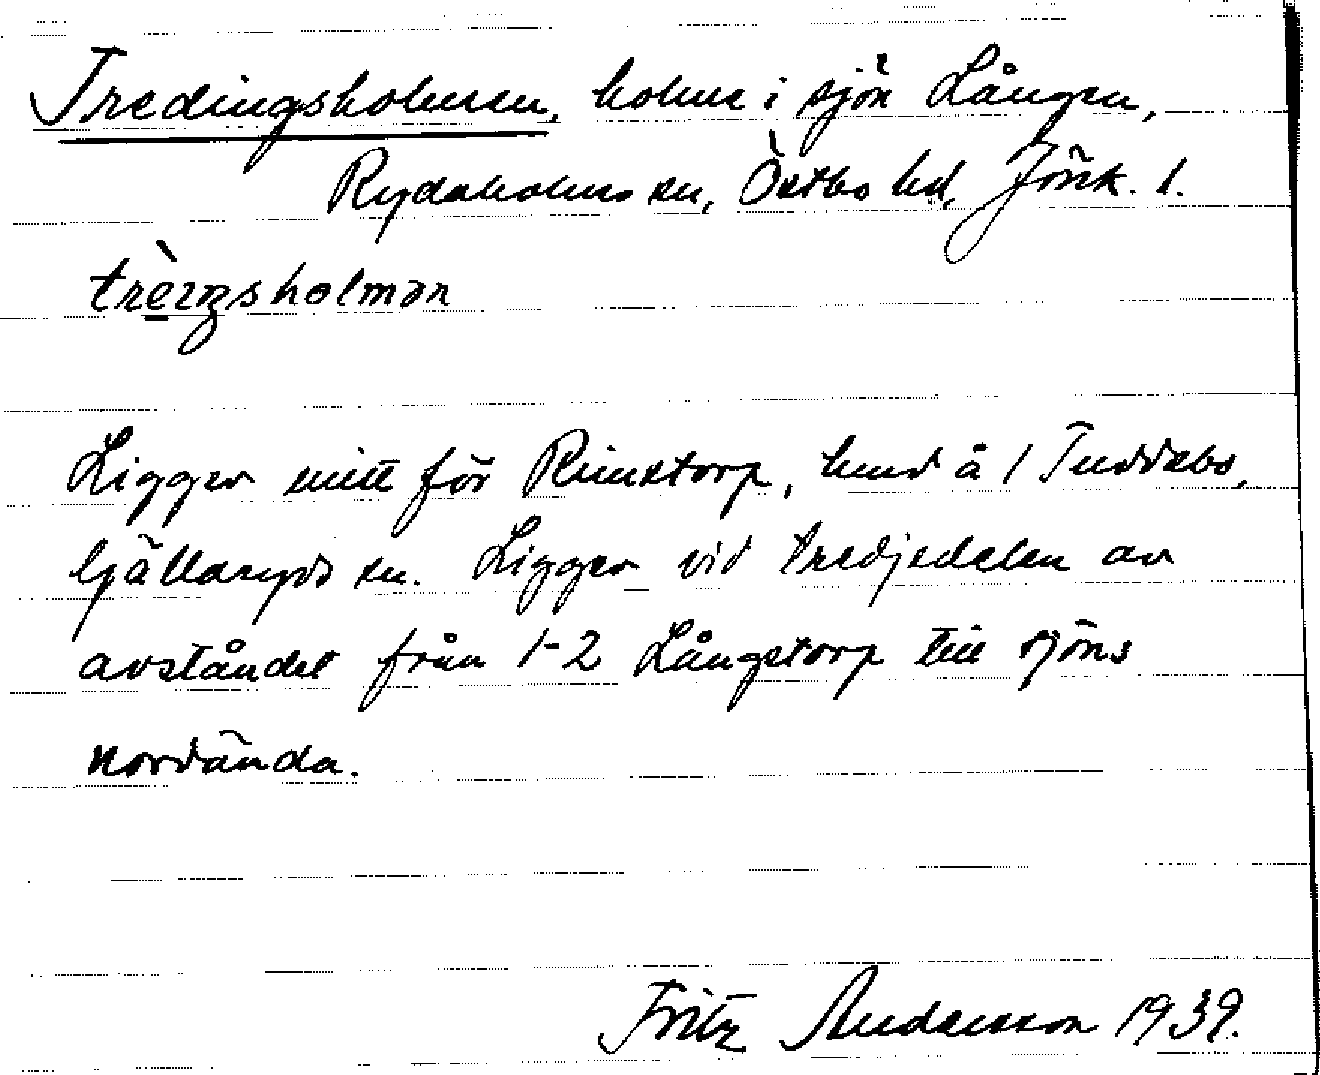 Tredingsholmen, holme i sjön Lången,
Rydaholms sn, Östbo hd, Jönk. l.
Ligger mitt för Rimstorp, hmd å 1 Tuddebo,
Gällaryds sn. Ligger vid tredjedelen av
avståndet från 1-2 Långstorp till sjöns
nordända.
Fritz Andersson 1939.